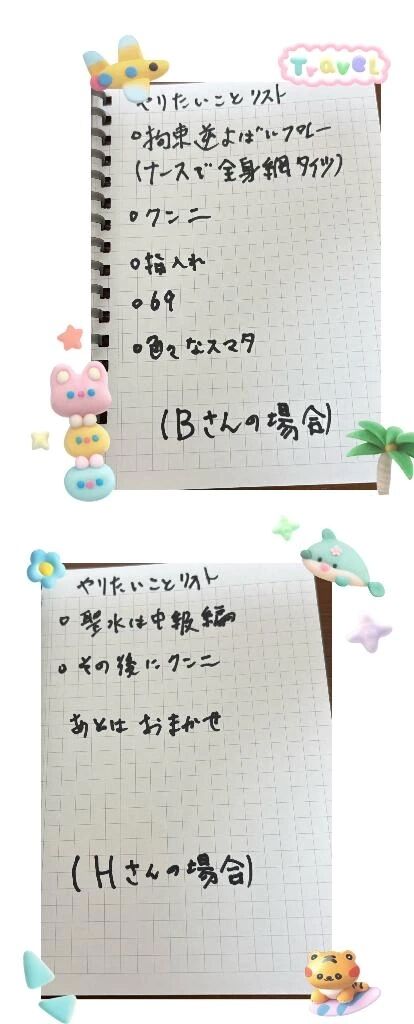 TraveL
やりたいことリスト
○拘束逆よばいプレー
(ナースで全身網タイツ)
○クンニ
○指入れ
○69
○色々なスマタ
(Bさんの場合)
やりたいことリスト
○聖水は中級編
○その後にクンニ
あとはおまかせ
(Hさんの場合)